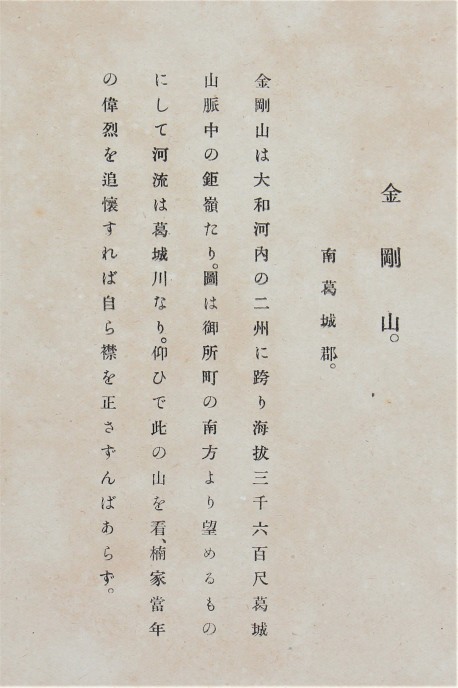 金剛山。
南葛城郡。
金剛山は大和河内の二州に跨り海拔三千六百尺葛城
山脈中の鉅嶺たり。圖は御所町の南方より望めるもの
にして河流は葛城川なり。仰ひで此の山を看、楠家當年
の偉烈を追懷すれば自ら襟を正さずんばあらず。